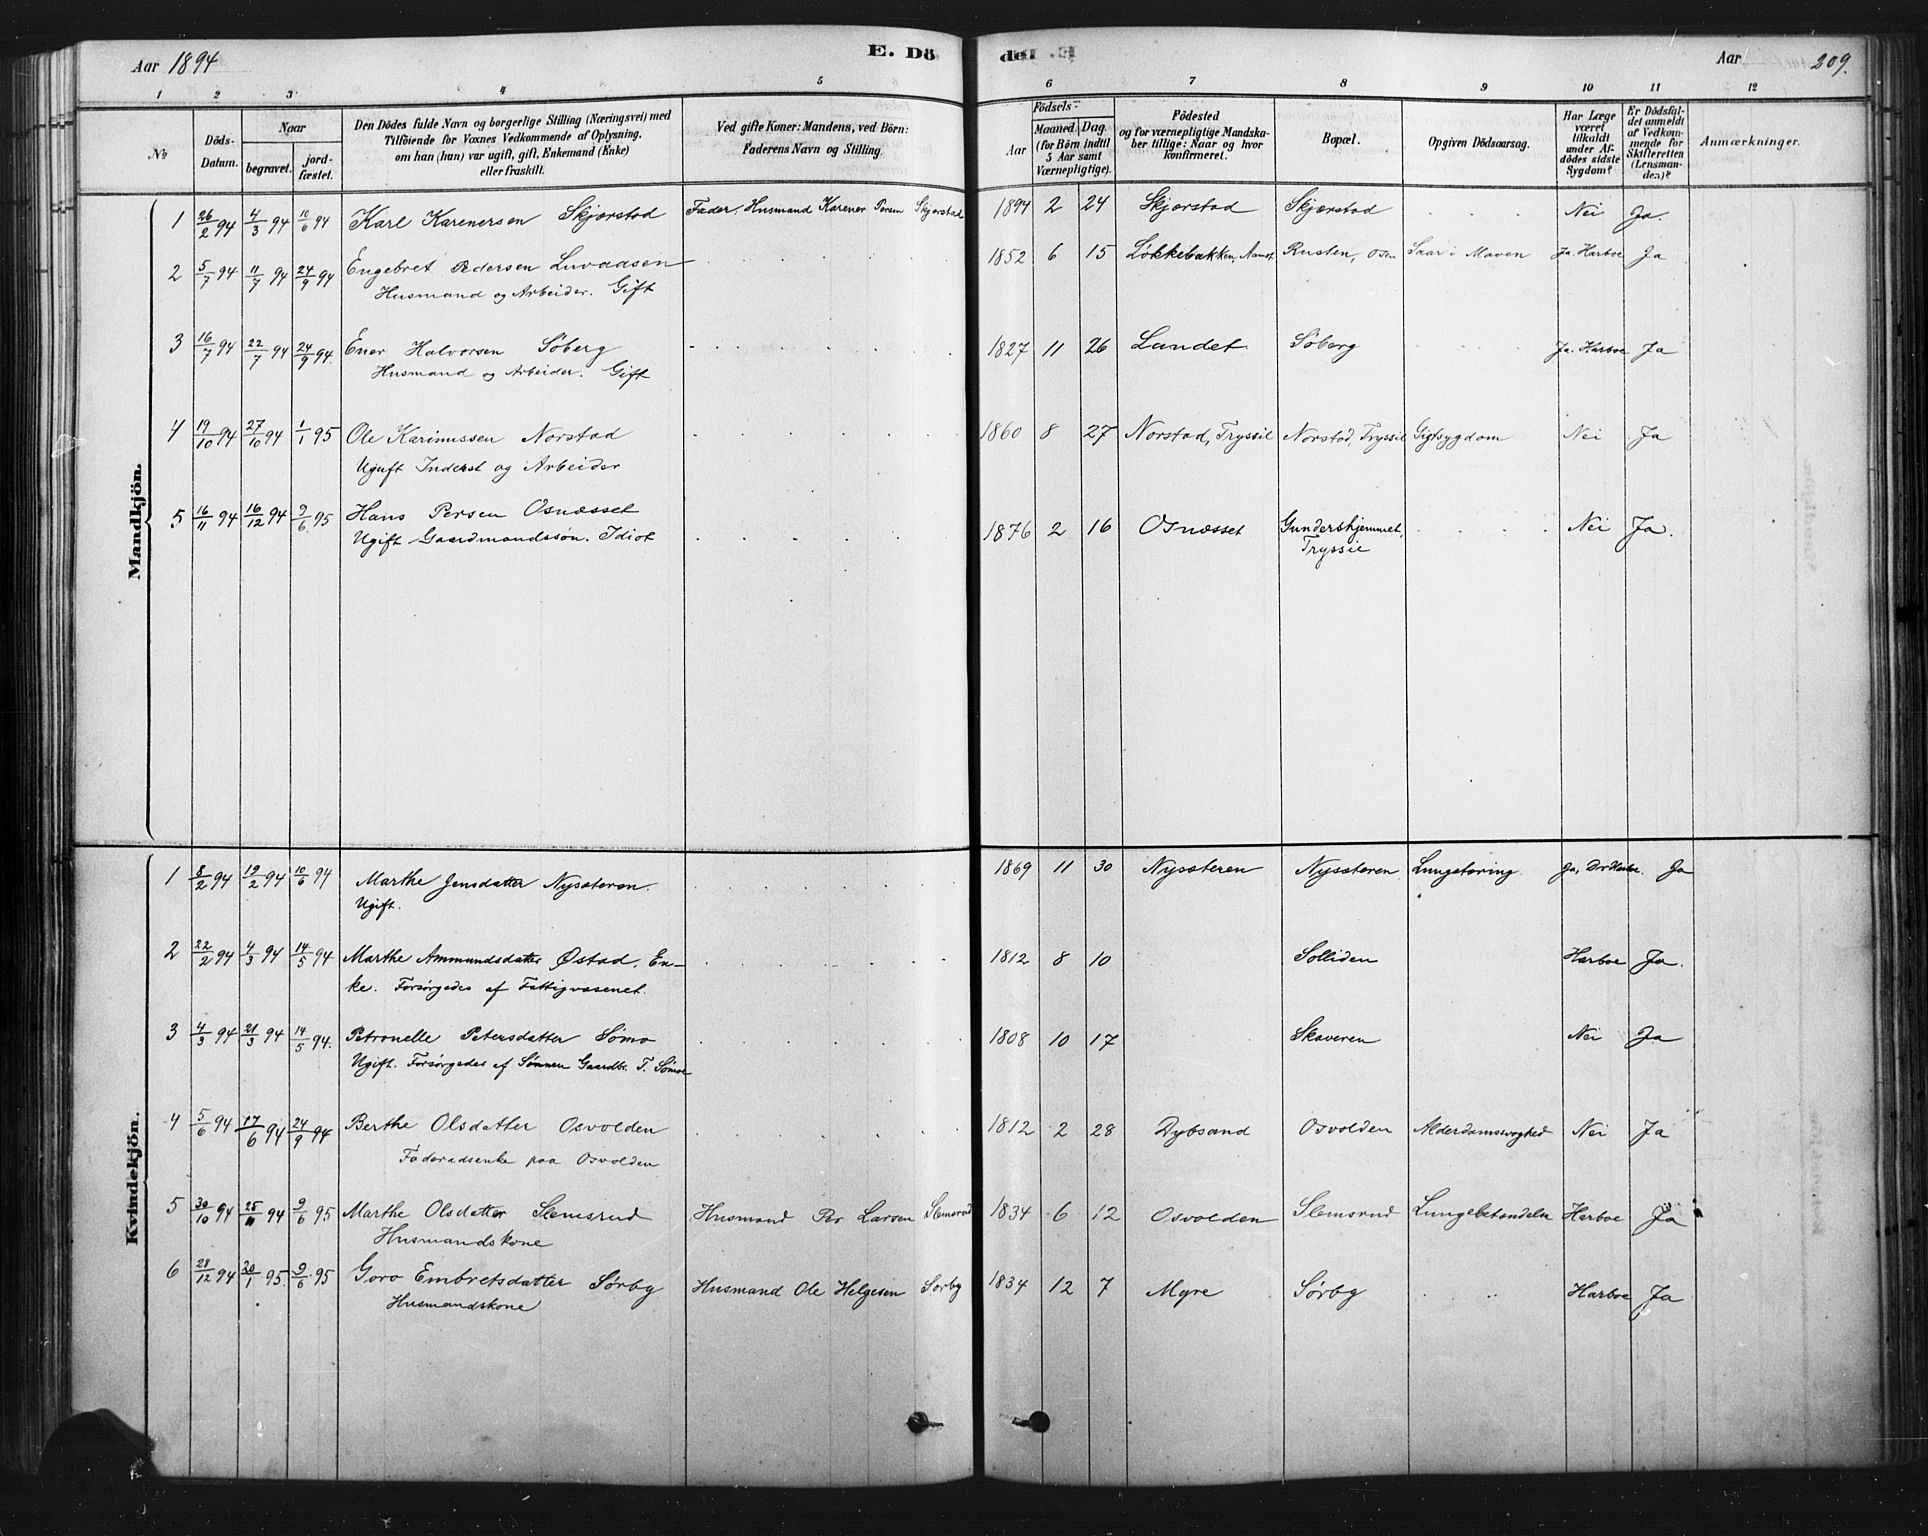 Aar 1894
E. Dö
del
Aar
209.
1 2 3 4 5 6 7 8 9 10 11 12
No
Döds-Datum.
Naar
begravet.
jordfæstet.
Den Dödes fulde Navn og borgerlige Stilling (Næringsvei) med
Tilföiende for Voxnes Vedkommende af Oplysning,
om han (hun) var ugift, gift, Enkemand (Enke)
eller fraskilt.
Ved gifte Koner: Mandens, ved Börn:
Faderens Navn og Stilling.
Födsels-
Aar
Maaned. Dag.
(for Börn indtil
5 Aar samt
Værnepligtige).
Födested
og for værnepligtige Mandskaber tillige: Naar og hvor
konfirmeret.
Bopæl.
Opgiven Dödsaarsag.
Har Læge
været
tilkaldt
under Afdödes sidste
Sygdom?
Er Dödsfaldet anmeldt
af Vedkommende for
Skifteretten
(Lensmanden)?
Anmærkninger.
Mandkjön.
1 26/2 94 4/3 94 10/6 94 Karl Karenersen Skjærstad Fader. Husmand Karener Persen Skjærstad 1894 2 24 Skjærstad Skjærstad Nei Ja.
2 5/7 94 11/7 94 24/9 94 Engebret Pedersen Luvaasen 1852 6 15 Løkkebakken, Aamot Rusten, Osen Saar i Maven Ja. Harboe Ja
Husmand og Arbeider. Gift
3 16/7 94 22/7 94 24/9 94. Ener Halvorsen Søberg 1827 11 26 Landet Søberg Ja. Harboe Ja
Husmand og Arbeider. Gift
4 19/10 94 27/10 94 1/1 95 Ole Karinussen Norstad 1860 8 27 Norstad, Tryssil Norstad, Tryssil Gigtsygdom Nei Ja
Ugift Inderst og Arbeider
5 16/11 94 16/12 94 9/6 95 Hans Persen Osnæsset 1876 2 16 Osnæsset Gunderskjemmet, Nei Ja.
Ugift Gaardmandssøn. Idiot Tryssil
Kvindekjön.
1 8/2 94 19/2 94 10/6 94 Marthe Jensdatter Nysæteren. 1869 11 30 Nysæteren Nysæteren Lungetæring Ja, Dr Harboe. Ja
Ugift.
2 22/2 94 4/3 94 14/5 94 Marthe Ammundsdatter Østad. En- 1812 8 10 Solliden Harboe Ja.
ke. Forsørgedes af Fattigvæsenet.
3 4/3 94 21/3 94 14/5 94. Petronelle Petersdatter Sømo 1808 10 17 Skaveren Nei Ja
Ugift. Forsørgedes af Sønnen Gaardbr. T. Sømoe
4 5/6 94 17/6 94 24/9 94 Berthe Olsdatter Osvolden 1812 2 28 Dybsand Osvolden Alderdomssvaghed Nei Ja
Føderaadsenke paa Osvolden
5 30/10 94 25/11 94 9/6 95 Marthe Olsdatter Slemsrud Husmand Per Larsen Slemsrud 1834 6 12 Osvolden Slemsrud Lungebetændelse Harboe Ja
Husmandskone
6 28/12 94 20/1 95. 9/6 95 Goro Embretsdatter Sørby Husmand Ole Helgesen Sørby 1834 12 7 Myre Sørby Harboe Ja
Husmandskone